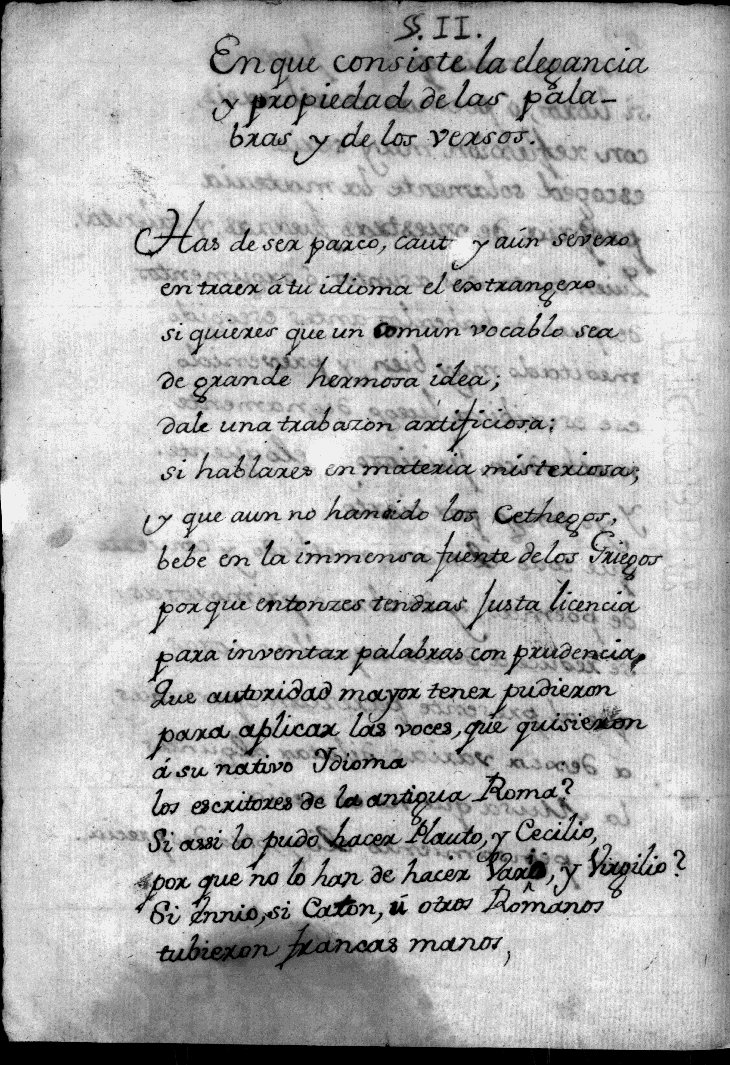 §. II.
En que consiste la elegancia
y propiedad de las pala-
bras y de los versos.
Has de ser parco, caut y aún severo
en traer a tu idioma el extrangero
si quieres que un comun vocablo sea
de grande hermosa idea;
dale una trabazon artificiosa;
si hablares en materia misteriosa;
y que aun no han oido los Cethegos,
bebe en la immensa fuente de los Griegos
por que entonzes tendras justa licencia
para inventar palabras con prudencia,
Que autoridad mayor tener pudieron
para aplicar las voces, que quisieron
á su nativo Ydioma
los escritores de la antigua Roma?
Si assi lo pudo hacer Plauto, y Cecilio,
por que no lo han de hacer Vario, y Virgilio?
Si Ennio, si Caton, ú otros Romanos
tubieron francas manos,